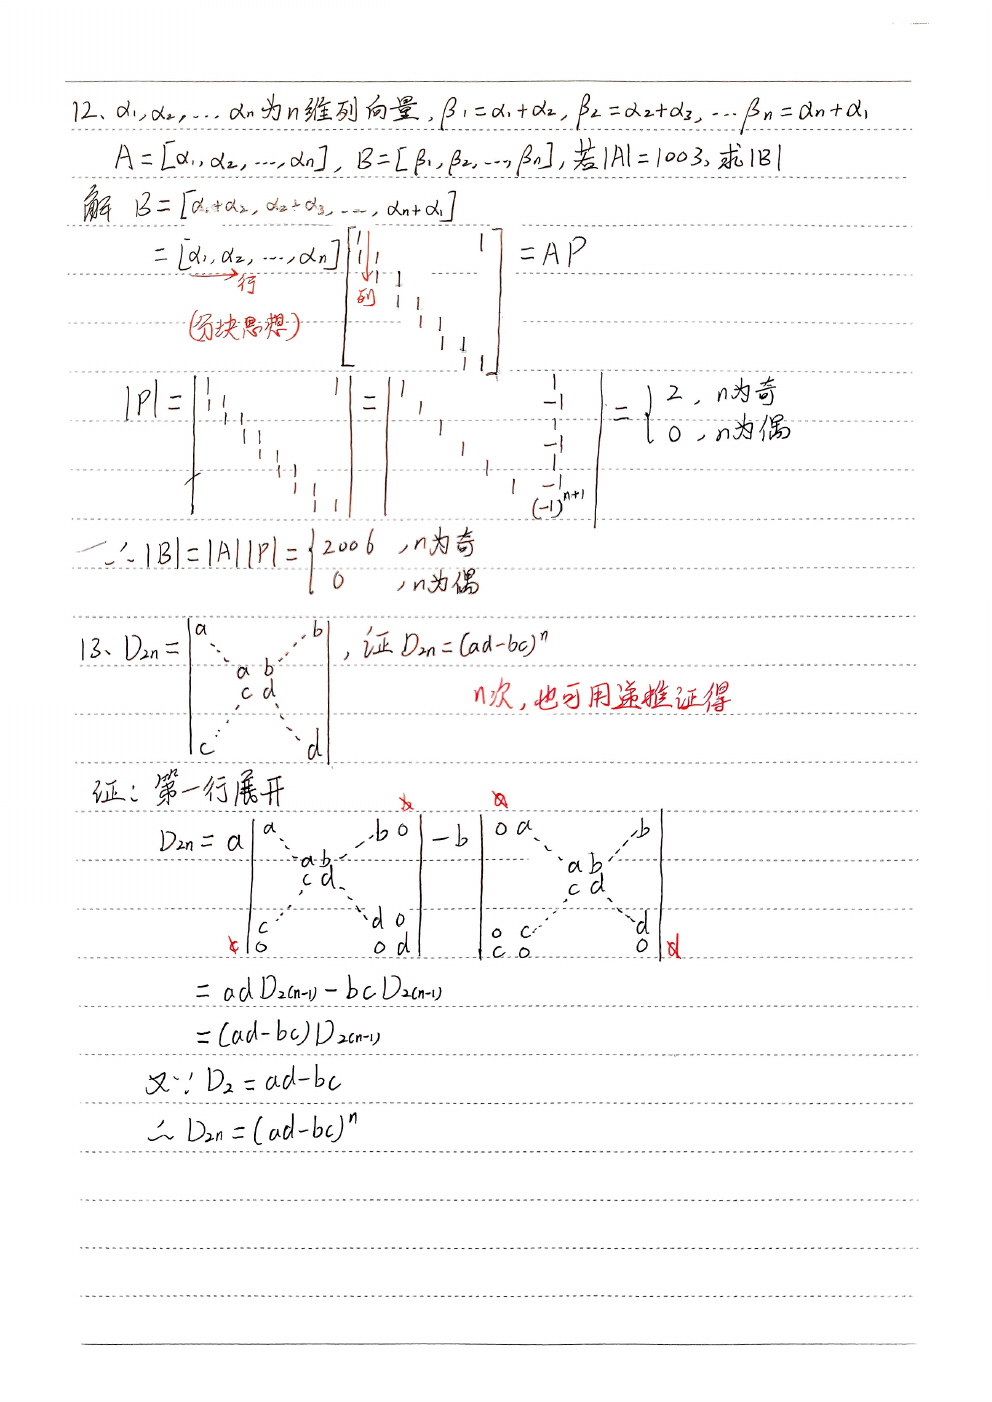 12、α₁,α₂,… αn为n维列向量, β₁=α₁+α₂, β₂=α₂+α₃, … βn=αn+α₁
A=[α₁,α₂,…,αn], B=[β₁,β₂,…,βn], 若|A|=1003, 求|B|
解 B=[α₁+α₂, α₂+α₃, …, αn+α₁]
=[α₁,α₂,…,αn] [1 1 1 1 1 1 1 1 1 1 1 1 1 1] =AP
行 列
(分块思想)
|P|= |1 1 1 1 1 1 1 1 1 1 1 1 1 1 1 1| = |1 1 1 1 1 1 1 -1 1 -1 1 -1 (-1)ⁿ⁺¹| = { 2, n为奇
0, n为偶
∴|B|=|A||P|= { 2006 ,n为奇
0 ,n为偶
13、D₂n= |a b
a b
c d
c d| , 证 D₂n=(ad-bc)ⁿ
n次, 也可用递推证得
证: 第一行展开
D₂n= a |a b 0
a b
c d
c d 0
0 0 d| -b |0 a b
a b
c d
0 c d
c 0 0|
= ad D₂(n-1) - bc D₂(n-1)
= (ad-bc) D₂(n-1)
又∵ D₂ = ad-bc
∴ D₂n = (ad-bc)ⁿ